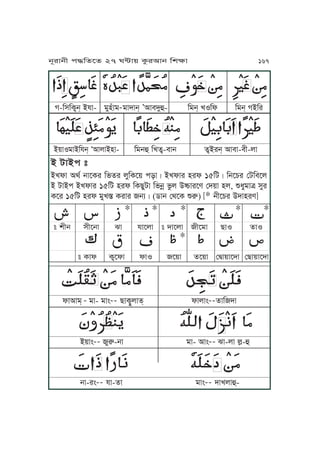 নূরানী পদ্ধতিতে ২৭ ঘণ্টায় কুরআন শিক্ষা ১৬৭
مِنْ غَيْرِ مِنْ خَوْفٍ مُحَمَّدًا عَبْدُهُ غَاسِقٍ إِذَا
মিন্ গইরি মিন্ খওফি মুহাম-মাদান্ 'আবদুহু- গ-সিক্বিন্ ইযা-
طَيْرًا أَبَابِيلَ مِنْهُ خِطَابًا يَوْمَئِذٍ عَلَيْهَا
তুইরন্ আবা-বী-লা মিনহু খিতু-বান ইয়াওমাইযিন্ 'আলাইহা-
ই টাইপ ঃ
ইখফা অর্থ নাকের ভিতর লুকিয়ে পড়া। ইখফার হরফ ১৫টি। নিচের টেবিলে
ই টাইপ ইখফার ১৫টি হরফ কিছুটা ভিন্ন ভুল উচ্চারণে দেয়া হল, শুধুমাত্র সুর
করে ১৫টি হরফ মুখস্ত করার জন্য। (ডান থেকে শুরু) [* নীচের উদাহরণ]
ت* ث* ج د* ذ* ز* س ش
তাও ছাও জীমো দালো ঃ যালো ঝা সীনো শীন ঃ
ص ض ط ظ* ف ق ك
ছোয়াদো দোয়াদো তয়ো জয়ো ফাও কুফো কাফ ঃ
فَلَنْ تَجِدَ فَأَمَّا مَنْ ثَقُلَتْ
ফালাং--তাজিদা ফাআম্ - মা- মাং-- ছাকুলাত্
مَا أَنْزَلَ اللهُ يَنْظُرُونَ
মা- আং-- ঝা-লা ল্ল-হু ইয়াং-- জুরূ-না
مَنْ دَخَلَهُ نَارًا ذَاتَ
মাং-- দাখলাহু- না-রং-- যা-তা